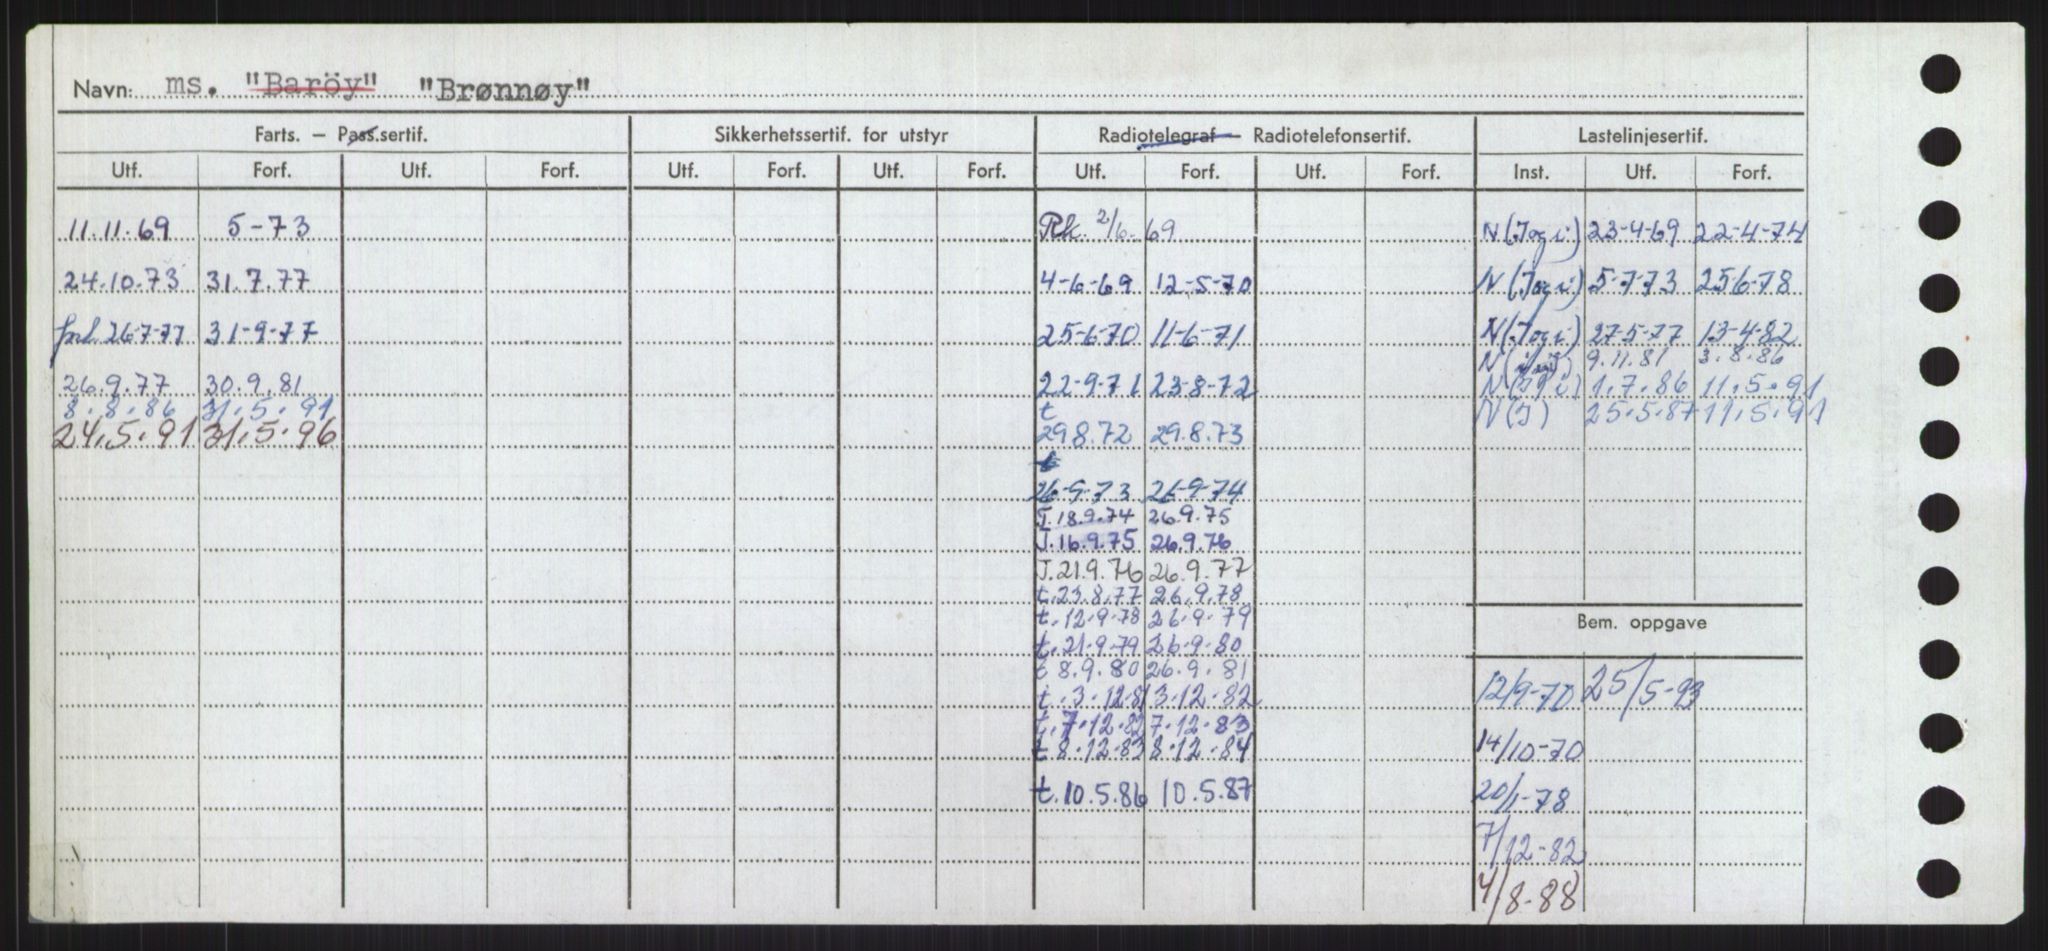 Navn: ms. "Baröy" "Brønnøy"
Farts. – Pass.sertif. Sikkerhetssertif. for utstyr Radiotelegraf – Radiotelefonsertif. Lastelinjesertif.
Utf. Forf. Utf. Forf. Utf. Forf. Utf. Forf. Utf. Forf. Utf. Forf. Inst. Utf. Forf.
11.11.69 5-73 Rk. 2/6. 69 N(Jogi) 23-4-69 22-4-74
24.10.73 31.7.77 4-6-69 12-5-70 N(Jogi) 5-7-73 25-6-78
forl. 26-7-77 31-9-77 25-6-70 11-6-71 N(Jogi) 27-5-77 13-4-82
N 9.11.81 3.8.86
26.9.77 30.9.81 22-9-71 23-8-72 N 1.7.86 11.5.91
8.8.86 31.5.91 t N(J) 25.5.87 11.5.91
24.5.91 31.5.96 29.8.72 29.8.73
t
26-9-73 26-9-74
J.18.9.74 26.9.75
J.16.9.75 26.9.76
J.21.9.76 26.9.77
t.23.8.77 26.9.78
t.12.9.78 26.9.79
Bem. oppgave
t.21.9.79 26.9.80
t 8.9.80 26.9.81
12/9-70 25/5-93
t.3.12.81 3.12.82
t.7.12.82 7.12.83
t 8.12.83 8.12.84
14/10-70
t.10.5.86 10.5.87 20/1-78
7/12-82
4/8-88